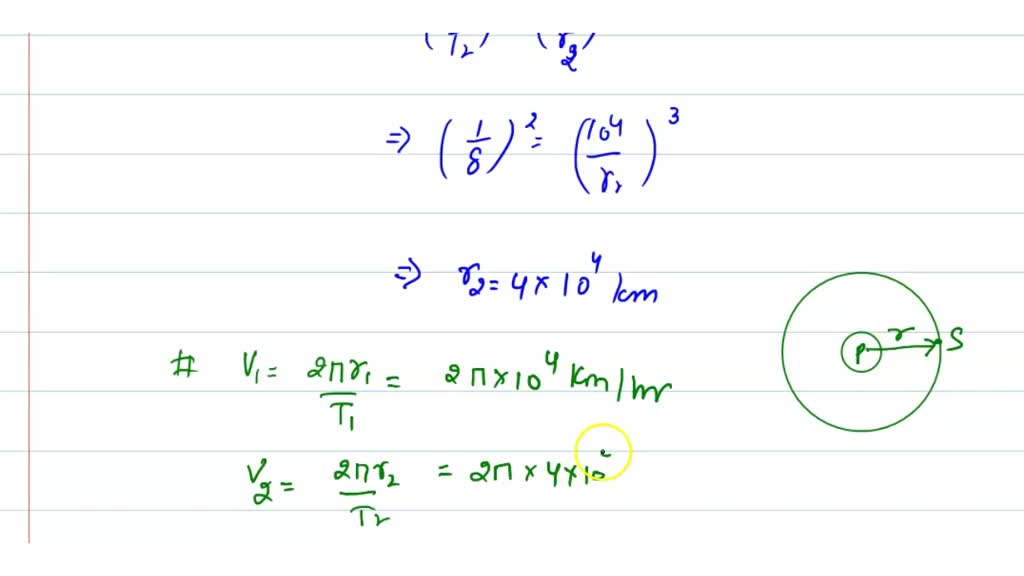 (T₂) (r₂)
=> (1/8)² = (10⁴/r₂)³
=> r₂ = 4 × 10⁴ km
# V₁ = 2πr₁/T₁ = 2π × 10⁴ km/hr
P r S
V₂ = 2πr₂/T₂ = 2π × 4 × 10